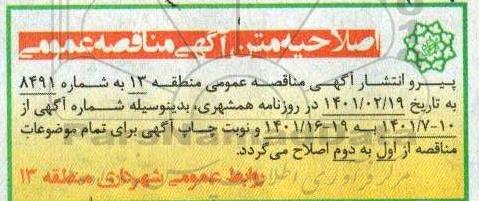 اصلاحیه متن آگهی مناقصه عمومی
پیرو انتشار آگهی مناقصه عمومی منطقه ۱۳ به شماره ۸۴۹۱
به تاریخ ۱۴۰۱/۰۲/۱۹ در روزنامه همشهری، بدینوسیله شماره آگهی از
۱۴۰۱/۷-۱۰ به ۱۹-۱۴۰۱/۱۶ و نوبت چاپ آگهی برای تمام موضوعات
مناقصه از اول به دوم اصلاح می‌گردد.
روابط عمومی شهرداری منطقه ۱۳